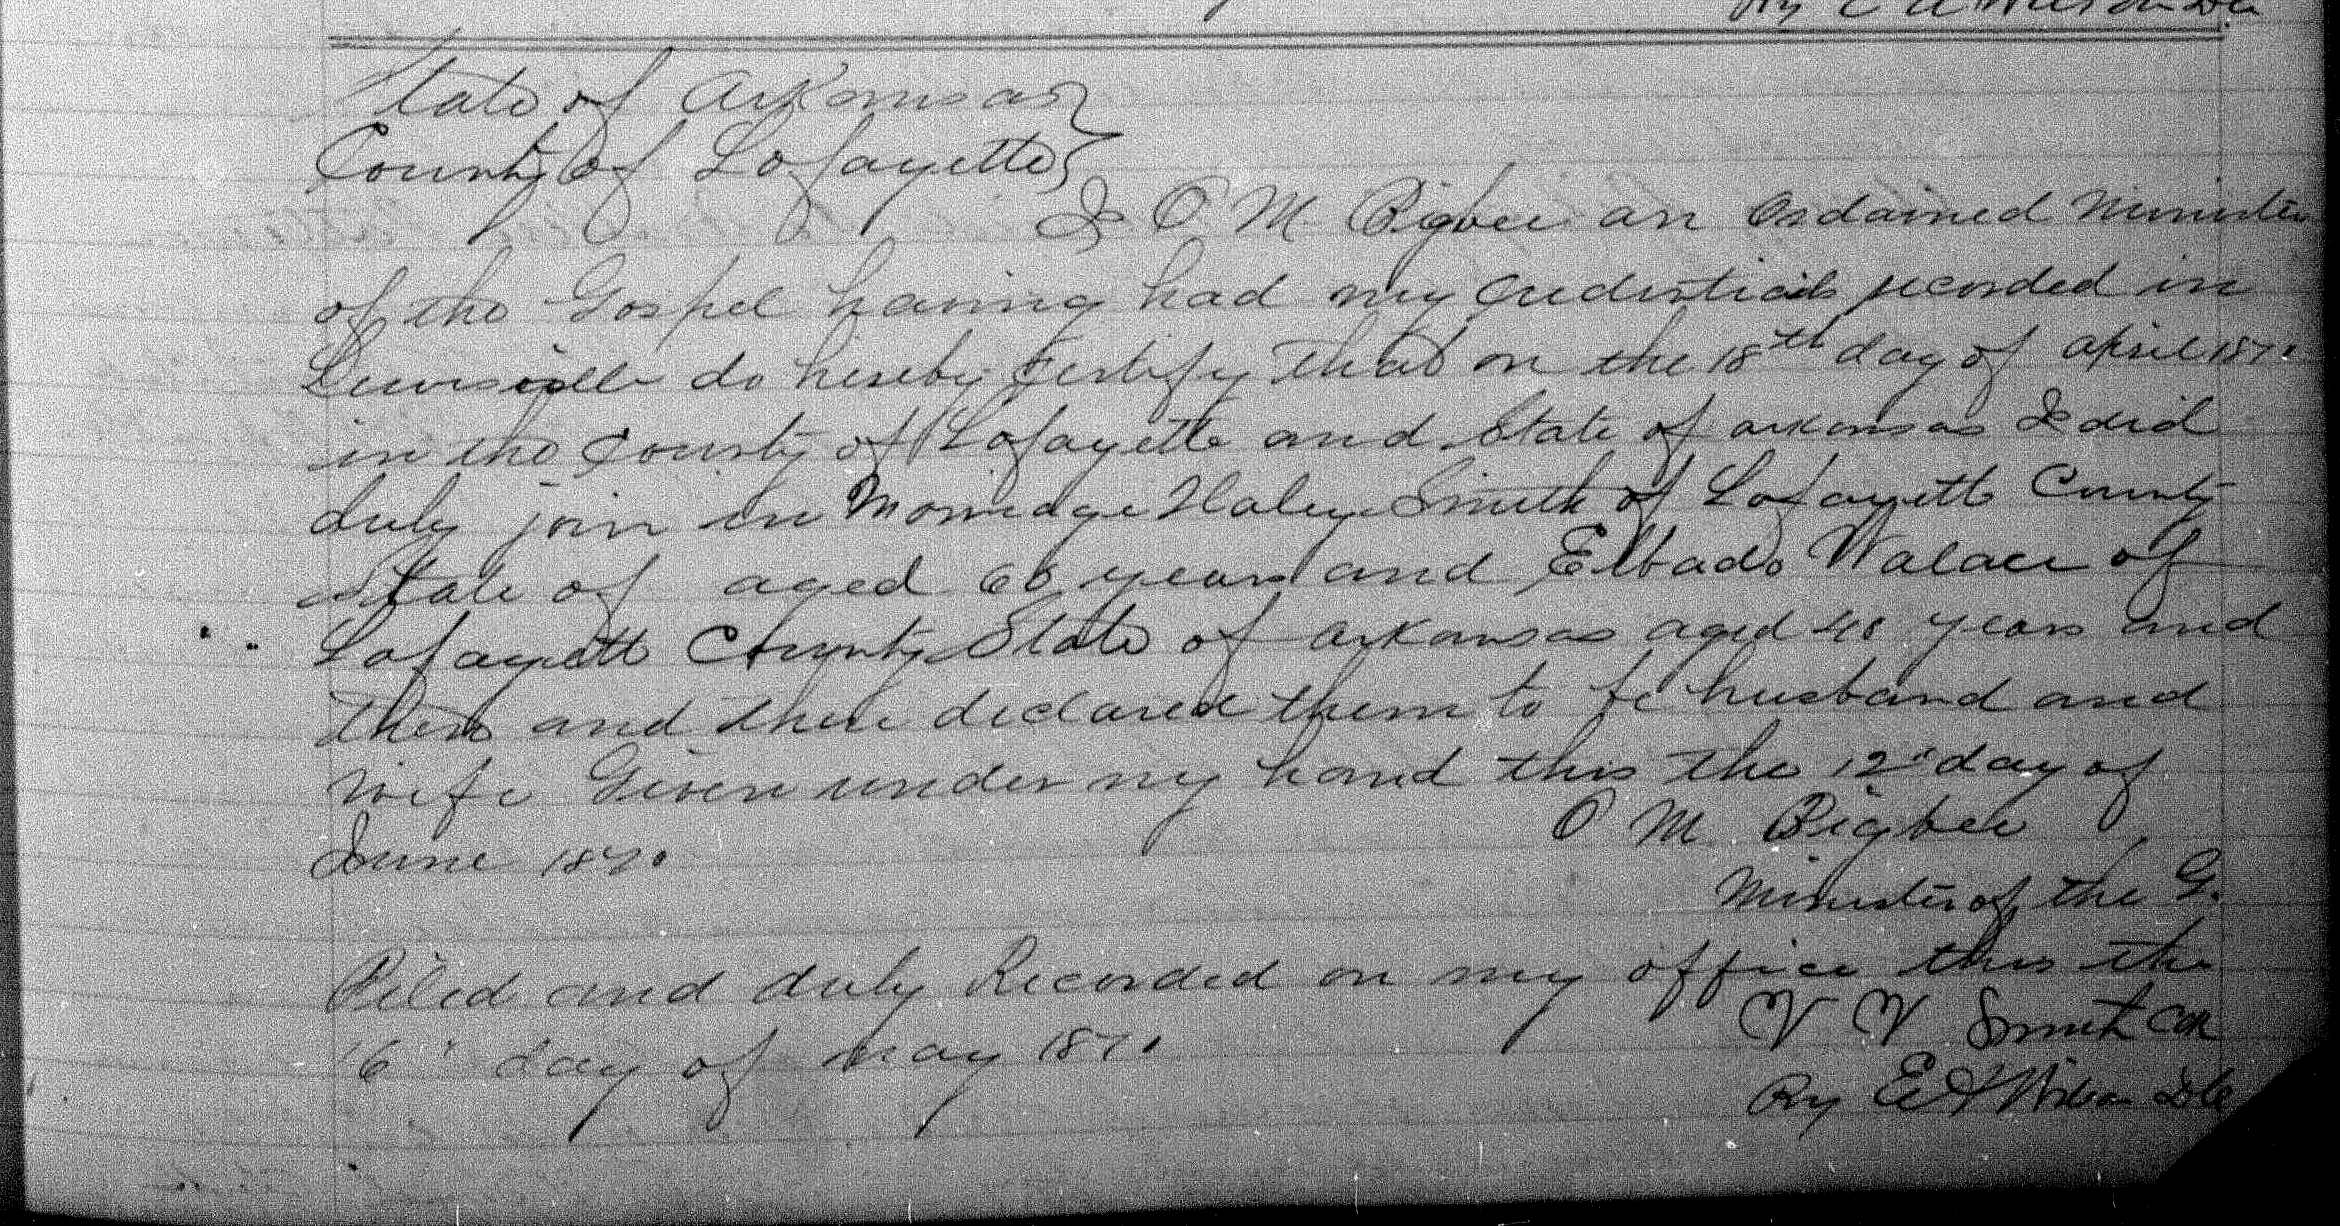 By E
State of Arkansas
County of Lafayette
I O M Bigbee an Ordained Minister
of the Gospel having had my credentials recorded in
Lewisville do hereby Certify that on the 18th day of April 187.
in the County of Lafayette and State of Arkansas I did
duly join in Marriage Haley Smith of Lafayette County
State of aged 66 years and Walace of
Lafayette County State of Arkansas aged 40 years and
then and there declared them to be husband and
wife Given under my hand this the 12" day of
June 187.
O M Bigbee
Minister of the G.
Filed and duly Recorded on my office this the
"6" day of May 187.
V V Smith Clk
By E Wilson